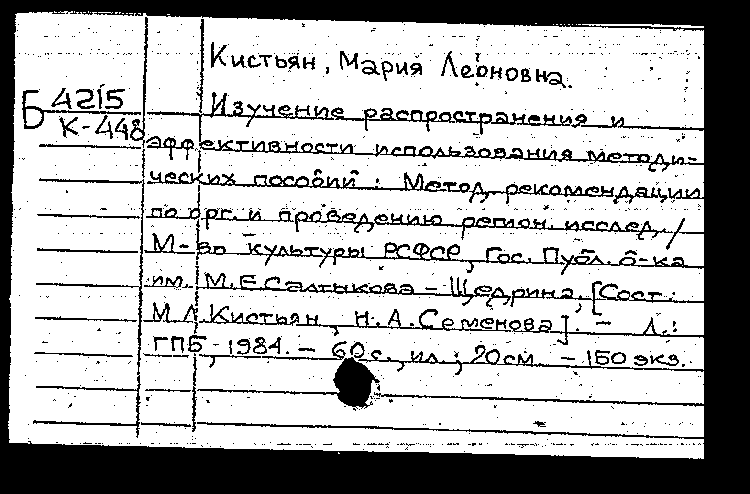 Кистьян, Мария Леоновна.
Б 4215
К-448
Изучение распространения и
эффективности использования методи-
ческих пособий : Метод. рекомендации
по орг. и проведению регион. исслед. /
М-во культуры РСФСР, Гос. Публ. б-ка
им. М.Е.Салтыкова-Щедрина; [Сост.:
М.Л.Кистьян, Н.А.Семенова]. - Л.:
ГПБ, 1984. - 60 с., ил.; 20 см. - 150 экз.